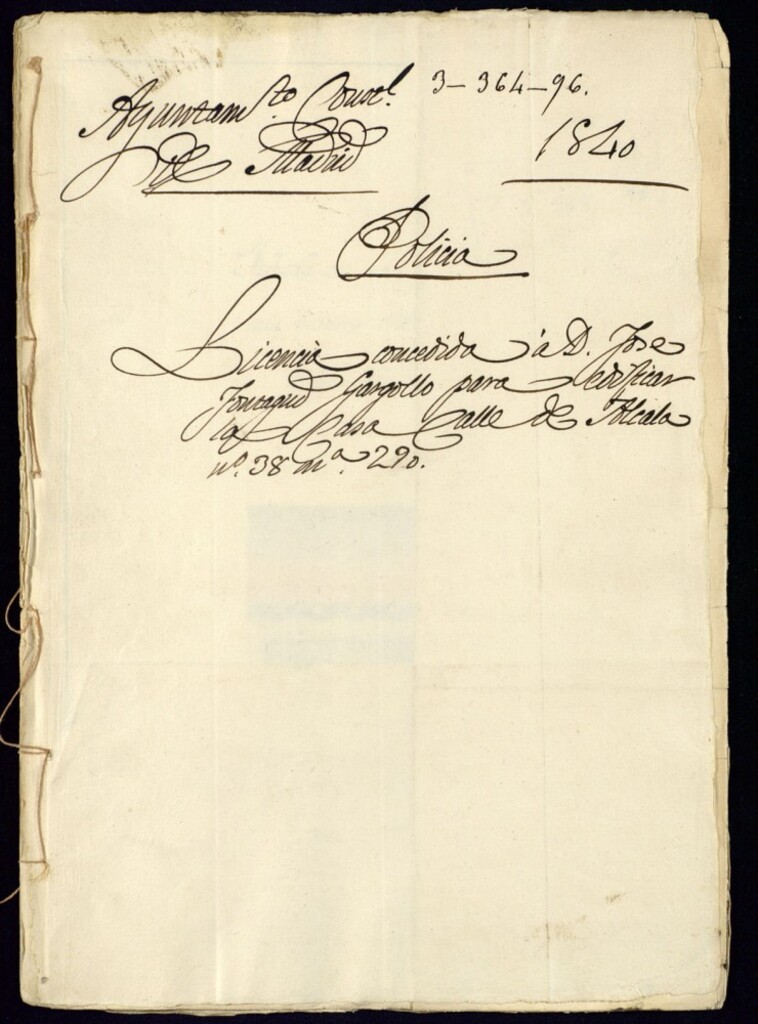 Ayuntam.to Const.l 3-364-96.
de Madrid 1840
Policia
Licencia concedida á D. Jose
Fontagud Gargollo para edificar
la Casa Calle de Alcala
nº. 38 mª. 290.